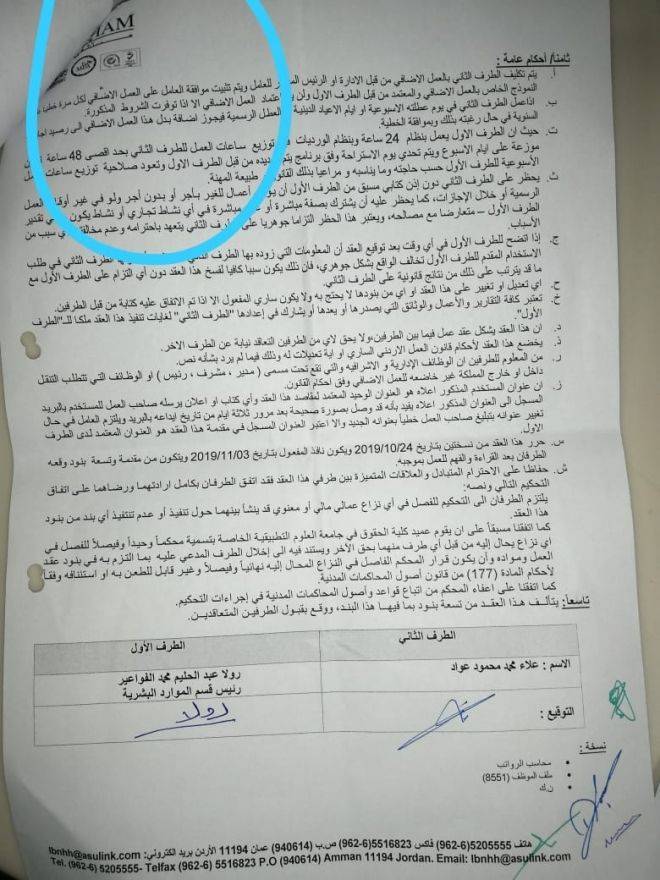 HAM
ثامناً/ أحكام عامة :
أ. يتم تكليف الطرف الثاني بالعمل الاضافي من قبل الادارة او الرئيس للعمل ويتم تثبيت موافقة العامل على العمل الاضافي لكل مرة
النموذج الخاص بالعمل الاضافي والمعتمد من قبل الطرف الاول ولن اعتماد العمل الاضافي الا اذا توفرت الشروط المذكورة.
ب. اذاعمل الطرف الثاني في يوم عطلته الاسبوعية او ايام الاعياد الدينية العطل الرسمية فيجوز اضافة بدل هذا العمل الاضافي الى رصيد
السنوية في حال رغبته بذلك وبموافقة الخطية.
ت. حيث ان الطرف الاول يعمل بنظام 24 ساعة وبنظام الورديات توزيع ساعات العمل للطرف الثاني بحد اقصى 48 ساعة
موزعة على ايام الاسبوع ويتم تحدي يوم الاستراحة وفق برنامج يتم من قبل الطرف الاول وتعود صلاحية توزيع ساعات
الأسبوعية للطرف الأول حسب حاجته وما يناسبه و مراعيا بذلك القانون طبيعة المهنة.
ث. يحظر على الطرف الثاني دون إذن كتابي مسبق من الطرف الأول أن أعمال للغير بأجر أو بدون أجر ولو في غير أوقات العمل
الرسمية أو خلال الإجازات، كما يحظر عليه أن يشترك بصفة مباشرة أو مباشرة في أي نشاط تجاري أو نشاط يكون في تقدير
الطرف الأول – متعارضا مع مصالحه، ويعتبر هذا الحظر التزاما جوهريا على الطرف الثاني يتعهد باحترامه وعدم مخالفته سبب من
الأسباب.
ج. إذا اتضح للطرف الأول في أي وقت بعد توقيع العقد أن المعلومات التي زوده بها الطرف الطرف الثاني في طلب
الاستخدام المقدم للطرف الأول تخالف الواقع بشكل جوهري، فان ذلك يكون سببا كافيا لفسخ هذا العقد دون أي التزام على الطرف الأول مع
ما قد يترتب على ذلك من نتائج قانونية على الطرف الثاني.
ح. اي تعديل او تغيير على هذا العقد او اي من بنودها لا يحتج به ولا يكون ساري المفعول الا اذا تم الاتفاق عليه كتابة من قبل الطرفين.
خ. تعتبر كافة التقارير والأعمال والوثائق التي يصدرها أو يعدها أو يشارك في إعدادها "الطرف الثاني" لغايات تنفيذ هذا العقد ملكا للـ"الطرف
الأول".
د. ان هذا العقد يشكل عقد عمل فيما بين الطرفين،ولا يحق لاي من الطرفين التعاقد نيابة عن الطرف الاخر.
ذ. يخضع هذا العقد لأحكام قانون العمل الاردني الساري او اية تعديلات له وذلك فيما لم يرد بشأنه نص.
ر. من المعلوم للطرفين ان الوظائف الإدارية و الاشرافيه والتي تقع تحت مسمى ( مدير ، مشرف ، رئيس ) او الوظائف التي تتطلب التنقل
داخل او خارج المملكة غير خاضعه للعمل الاضافي وفق احكام القانون.
ز. ان عنوان المستخدم المذكور اعلاه هو العنوان الوحيد المعتمد لمقاصد هذا العقد وأي كتاب او اعلان يرسله صاحب العمل للمستخدم بالبريد
المسجل الى العنوان المذكور اعلاه يفيد بأنه قد وصل بصورة صحيحة بعد مرور ثلاثة ايام من تاريخ ايداعه بالبريد ويلتزم العامل في حال
تغيير عنوانه بتبليغ صاحب العمل خطياً بعنوانه الجديد والا اعتبر العنوان المسجل في مقدمة هذا العقد هو العنوان المعتمد لدى الطرف
الاول.
س. حرر هذا العقد من نسختين بتاريخ 2019/10/24 ويكون نافذ المفعول بتاريخ 2019/11/03 ويتكون من مقدمة وتسعة بنود وقعه
الطرفان بعد القراءة والفهم للعمل بموجبه.
ش. حفاظا على الاحترام المتبادل والعلاقات المتميزة بين طرفي هذا العقد فقد اتفق الطرفان بكامل ارادتهما ورضاهما على اتفاق
التحكيم التالي ونصه:
يلتزم الطرفان الى التحكيم للفصل في أي نزاع عمالي مالي أو معنوي قد ينشأ بينهما حول تنفيذ أو عدم تنتفيذ أي بند من بنود
هذا العقد.
كما اتفقنا مسبقاً على ان يقوم عميد كلية الحقوق في جامعة العلوم التطبيقية الخاصة بتسمية محكماً وحيداً وفيصلاً للفصل في
أي نزاع يحال إليه من قبل أي طرف منهما بحق الآخر ويستند فيه الى إخلال الطرف المدعي عليه بما التزم به في بنود عقد
العمل ومواده وأن يكون قرار المحكم الفاصل في النزاع المحال إليه نهائياً وفيصلاً وغير قابل للطعن به او استئنافه وفقاً
لأحكام المادة (177) من قانون أصول المحاكمات المدنية.
كما اتفقتا على اعفاء المحكم من اتباع قواعد وأصول المحاكمات المدنية في إجراءات التحكيم.
تاسعاً: يتألف هذا العقد من تسعة بنود بما فيها هذا البند، ووقع بقبول الطرفين المتعاقدين.
الطرف الثاني الطرف الأول
الاسم : علاء محمد محمود عواد رولا عبد الحليم محمد الفواعير
رئيس قسم الموارد البشرية
التوقيع : رولا
نسخة :
• محاسب الرواتب
• ملف الموظف (8551)
• ن.ك
هاتف 5205555(6-962) فاكس 5516823(6-962) ص.ب (940614) عمان 11194 الأردن بريد الكتروني: Ibnhh@asulink.com
Tel. (962-6) 5205555- Telfax (962-6) 5516823 P.O (940614) Amman 11194 Jordan. Email: Ibnhh@asulink.com